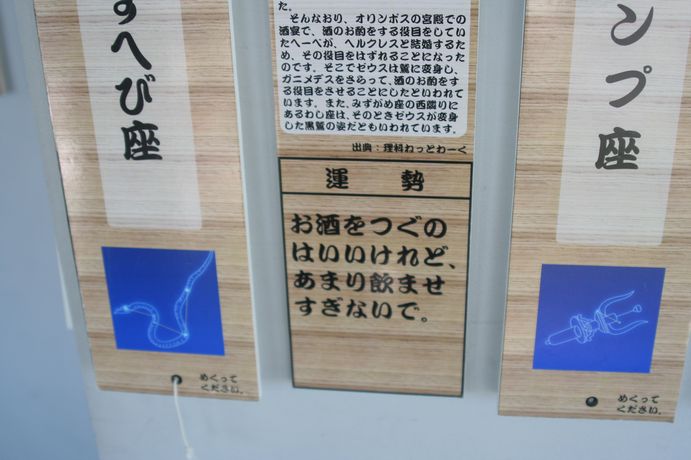 ずへび座
めくって
ください。
た。
そんなおり、オリンポスの宮殿での
酒宴で、酒のお酌をする役目をしてい
たヘーベが、ヘルクレスと結婚するた
め、その役目をはずれることになった
のです。そこでゼウスは鷲に変身し、
ガニメデスをさらって、酒のお酌をす
る役目をさせることにしたといわれて
います。また、みずがめ座の西隣りに
あるわし座は、そのときゼウスが変身
した黒鷲の姿だともいわれています。
出典：理科ねっとわーく
運勢
お酒をつぐの
はいいけれど、
あまり飲ませ
すぎないで。
ンプ座
めくって
ください。